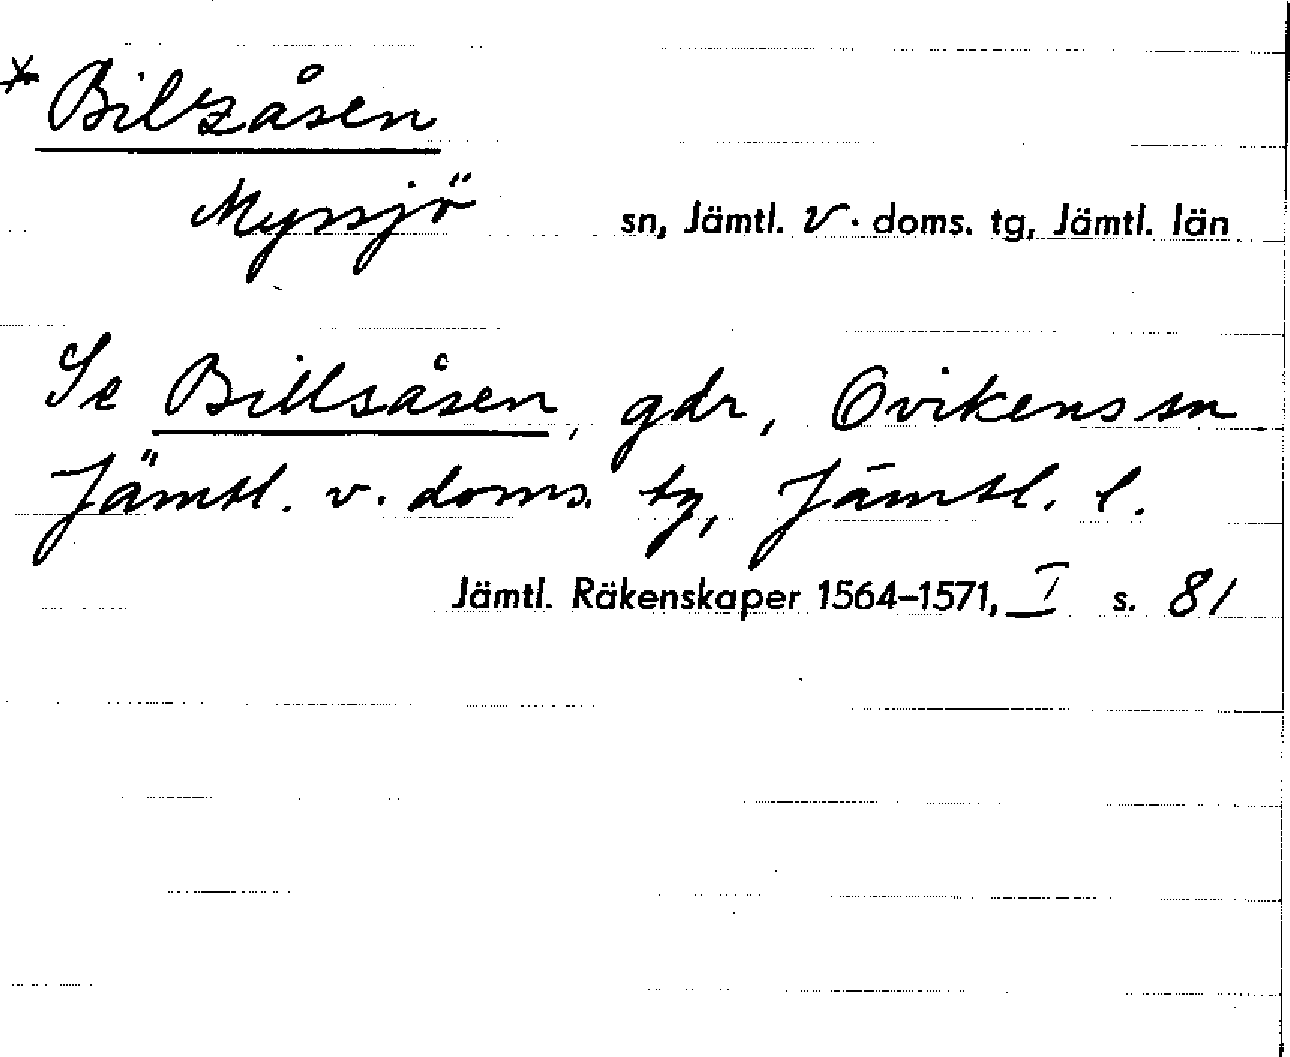 * Bilzåsen
Myssjö sn, Jämtl. v. doms. tg, Jämtl. län
Se Billsåsen, gdr, Ovikens sn
Jämtl. v. doms. tg, Jämtl. l.
Jämtl. Räkenskaper 1564–1571, I s. 81